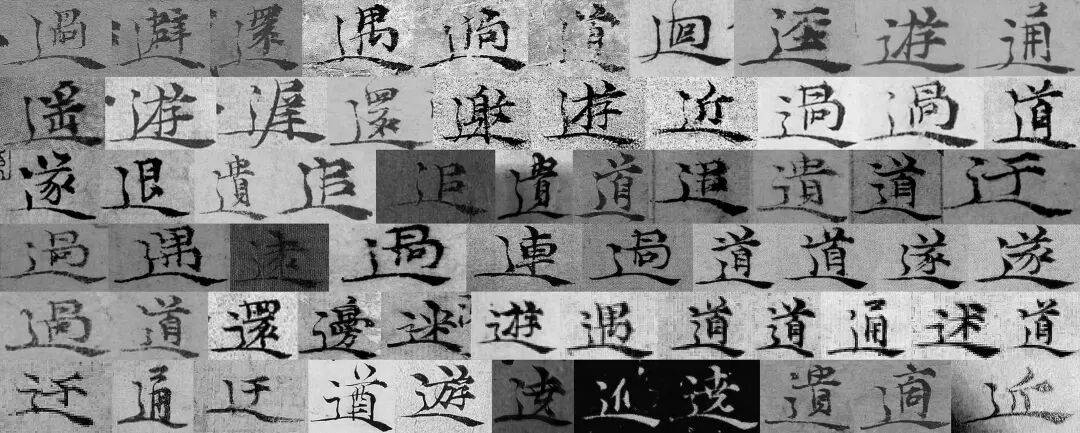 過避還遇過道迴逕遊通
遙遊遲還邀遊近過過道
遂退遺追追遺道追遺道迂
過遇逮過連過道道遂遂
過道還邊迷遊遇道道通述道
迁通迂遒遊遶近遶遺適近